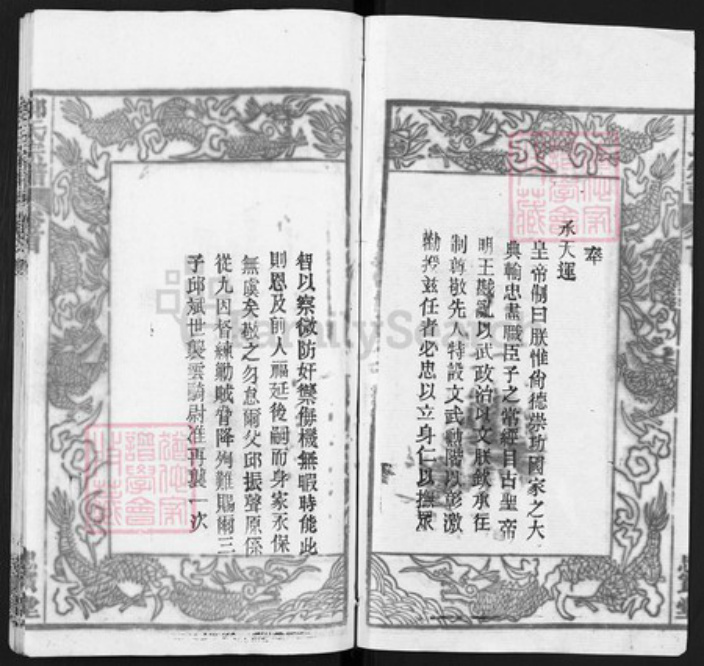 奉
承天運
皇帝制曰朕惟尙德崇功國家之大
典輸忠盡職臣子之常經自古聖帝
明王戡亂以武政治以文朕欽承往
制尊敬先人特設文武勳階以彰激
勸授茲任者必忠以立身仁以撫眾
智以察微防奸禦侮機無暇時能此
則恩及前人福延後嗣而身家永保
無虞矣敬之勿怠爾父邱振聲原係
從九因督練勦賊脅降殉難賜爾三
子邱斌世襲雲騎尉准再襲一次
FamilySearch